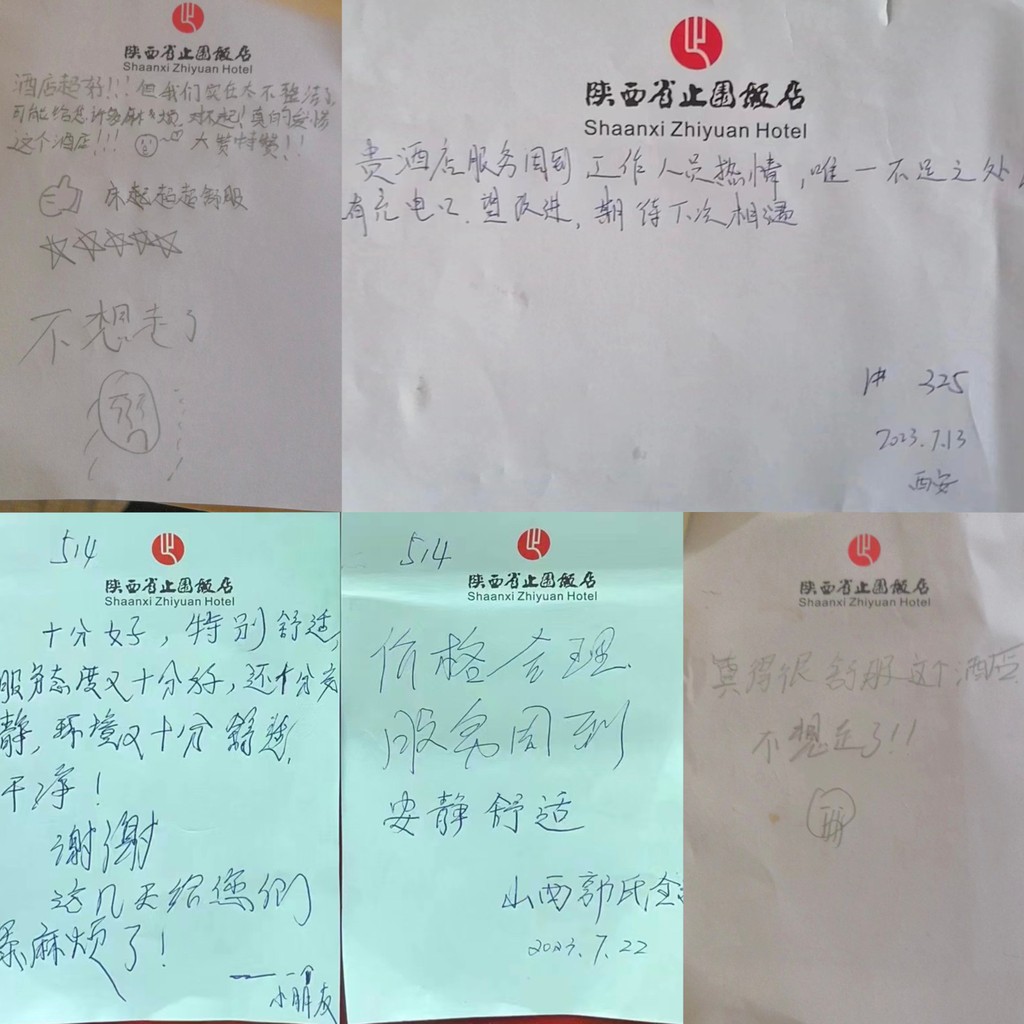 陕西省止园饭店
Shaanxi Zhiyuan Hotel
酒店超好!!! 但我们实在太不整洁了
可能给您许多麻烦,对不起!真的爱惜
这个酒店!!! 大赞特赞!!
床超超超舒服
不想走了
陕西省止园饭店
Shaanxi Zhiyuan Hotel
贵酒店服务周到 工作人员热情,唯一不足之处
有充电口.望改进,期待下次相遇
1# 325
2023.7.13
西安
514
陕西省止园饭店
Shaanxi Zhiyuan Hotel
十分好,特别舒适,
服务态度又十分好,还十分安
静,环境又十分舒适,
干净!
谢谢
这几天给您们
添麻烦了!
——一个
小朋友
514
陕西省止园饭店
Shaanxi Zhiyuan Hotel
价格合理
服务周到
安静舒适
山西郭氏
2023.7.22
陕西省止园饭店
Shaanxi Zhiyuan Hotel
真得很舒服这个酒店
不想走了!!